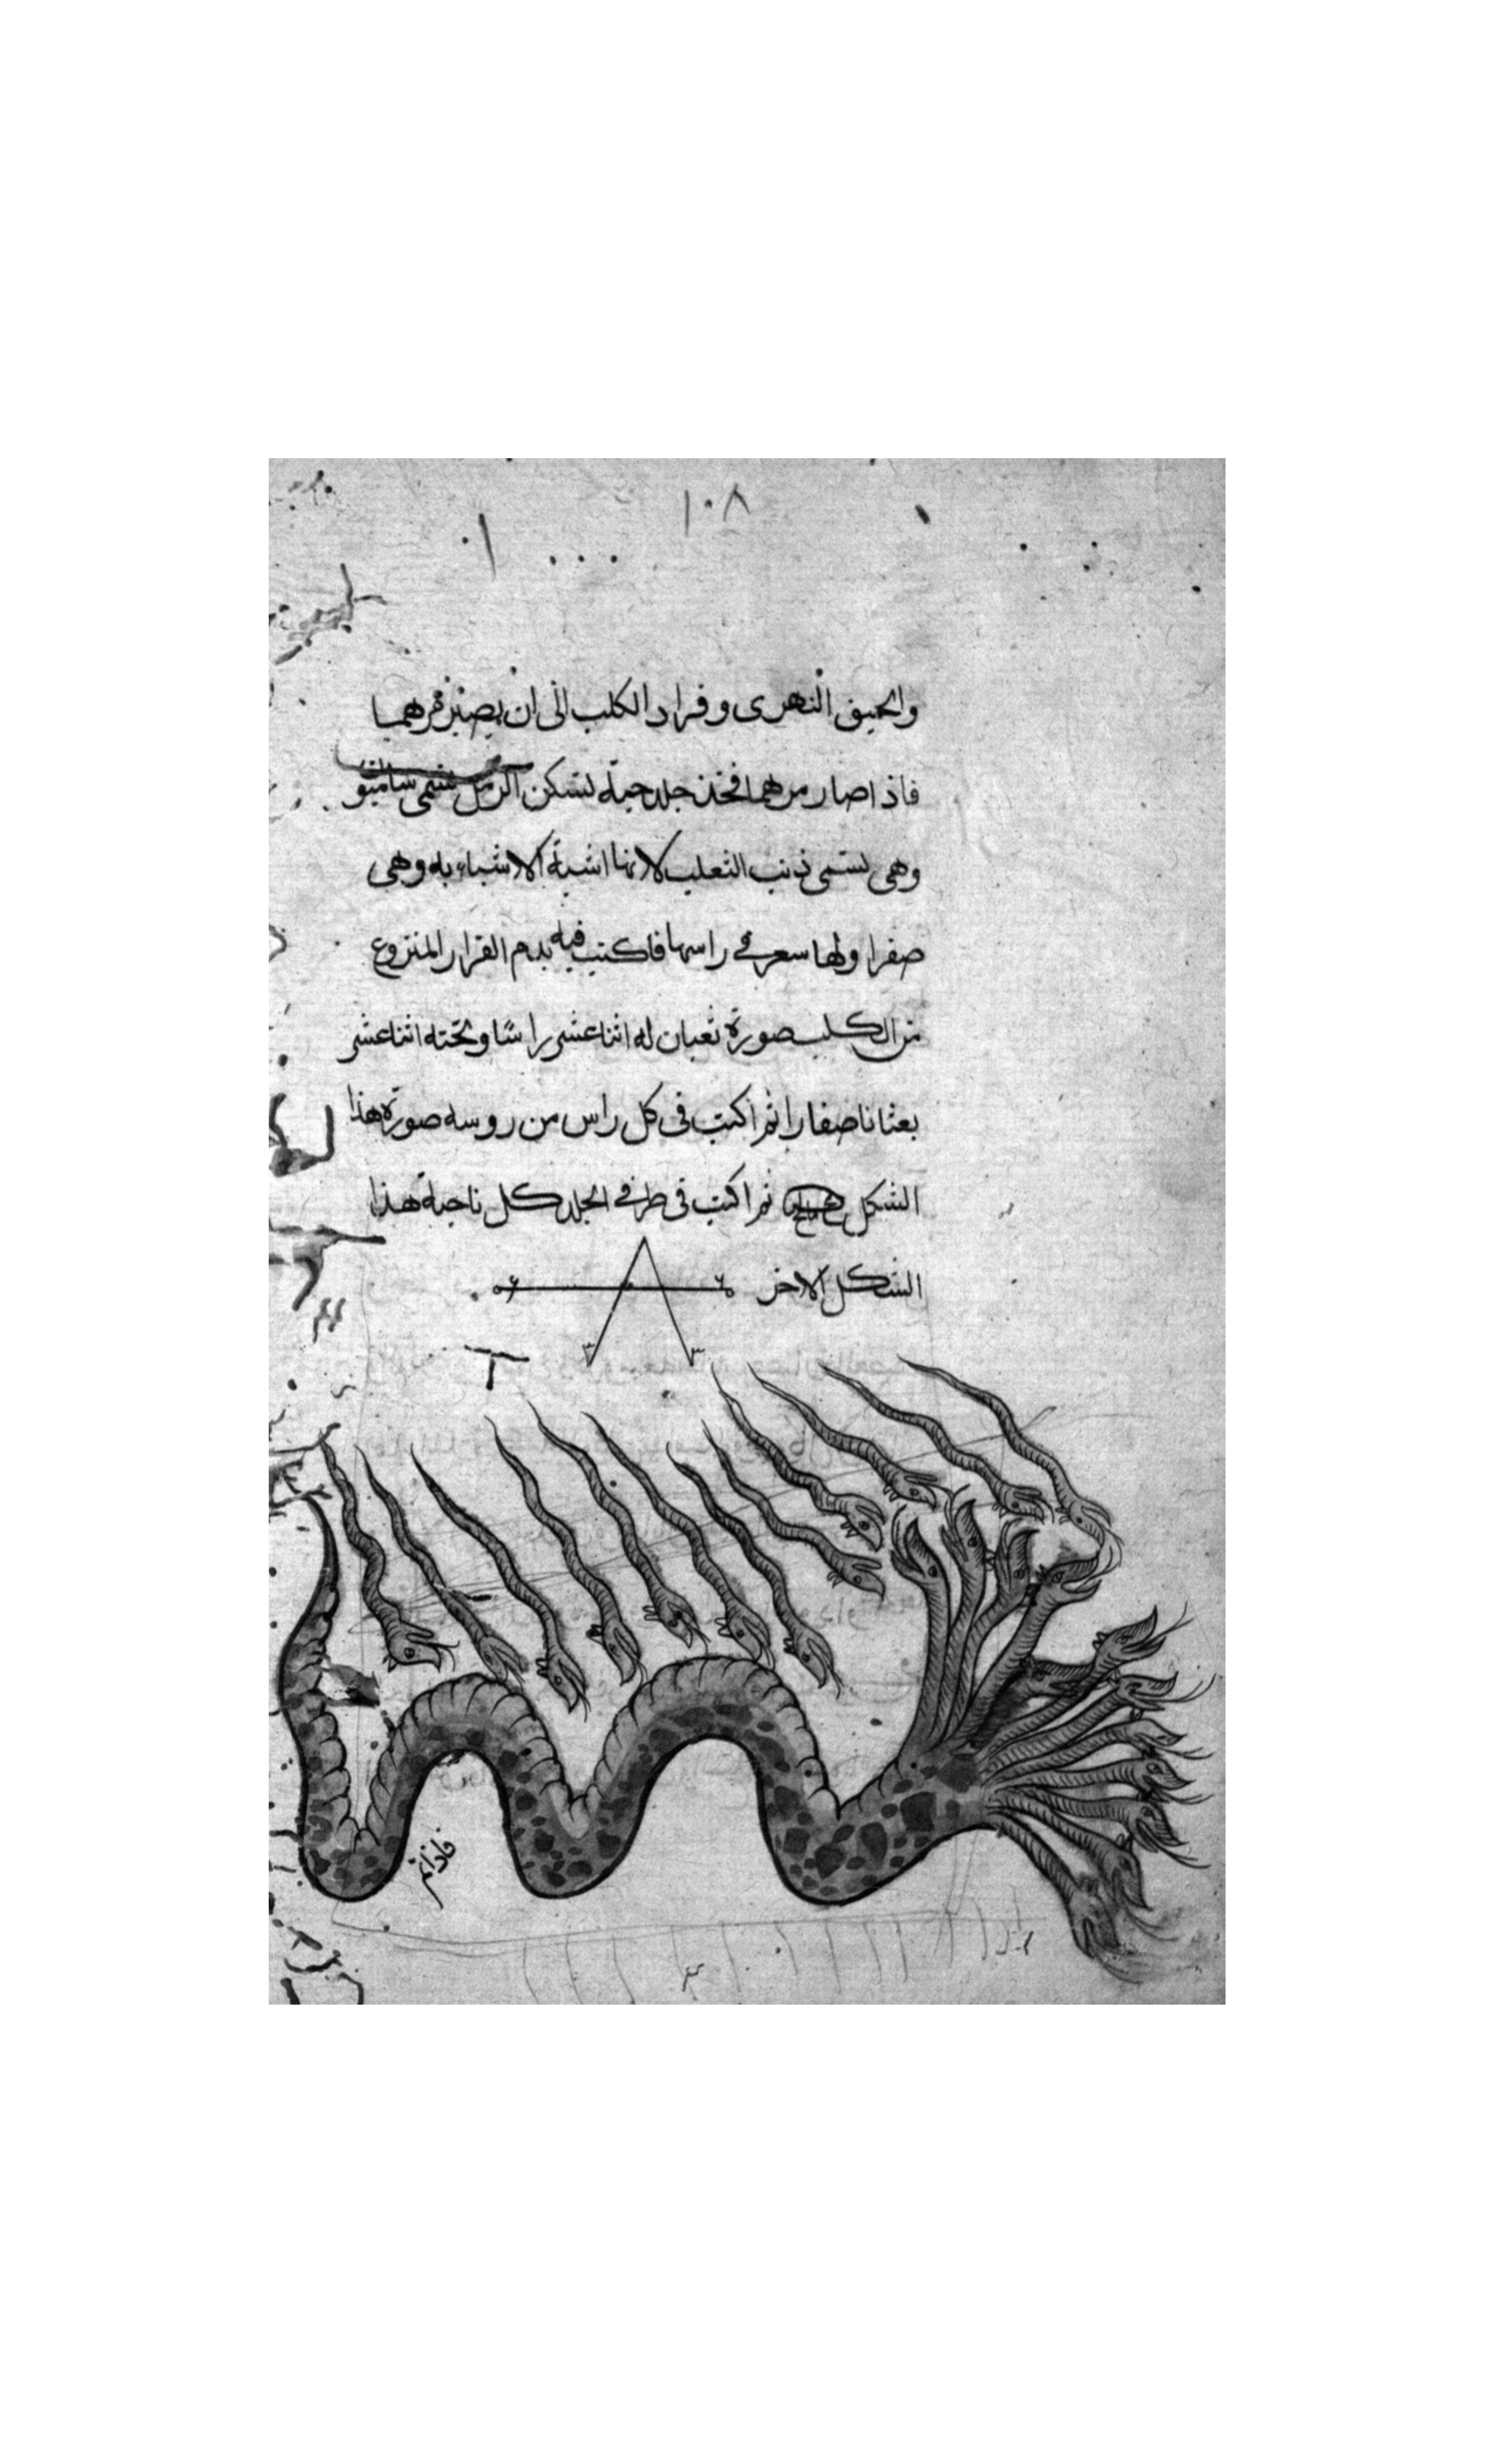 ١٠٨
والحبق النهرى وقراد الكلب الى ان يصير مرهما
فاذا صار مرهما فخذ جلد حية تسكن الرمل تسمى
وهى تسمى ذنب الثعلب لانها اشبه الاشياء به وهى
صفرا ولها سعر فى راسها فاكتب فيه بدم القرار المنزوع
من الكلب صورة ثعبان له اثنا عشر راسًا وتحته اثنا عشر
بعثانا صفارا ثم اكتب فى كل راس من روسه صورة هذا
الشكل ثم اكتب فى طرفى الجلد كل ناحية هذا
الشكل الاخر
فاذا تم